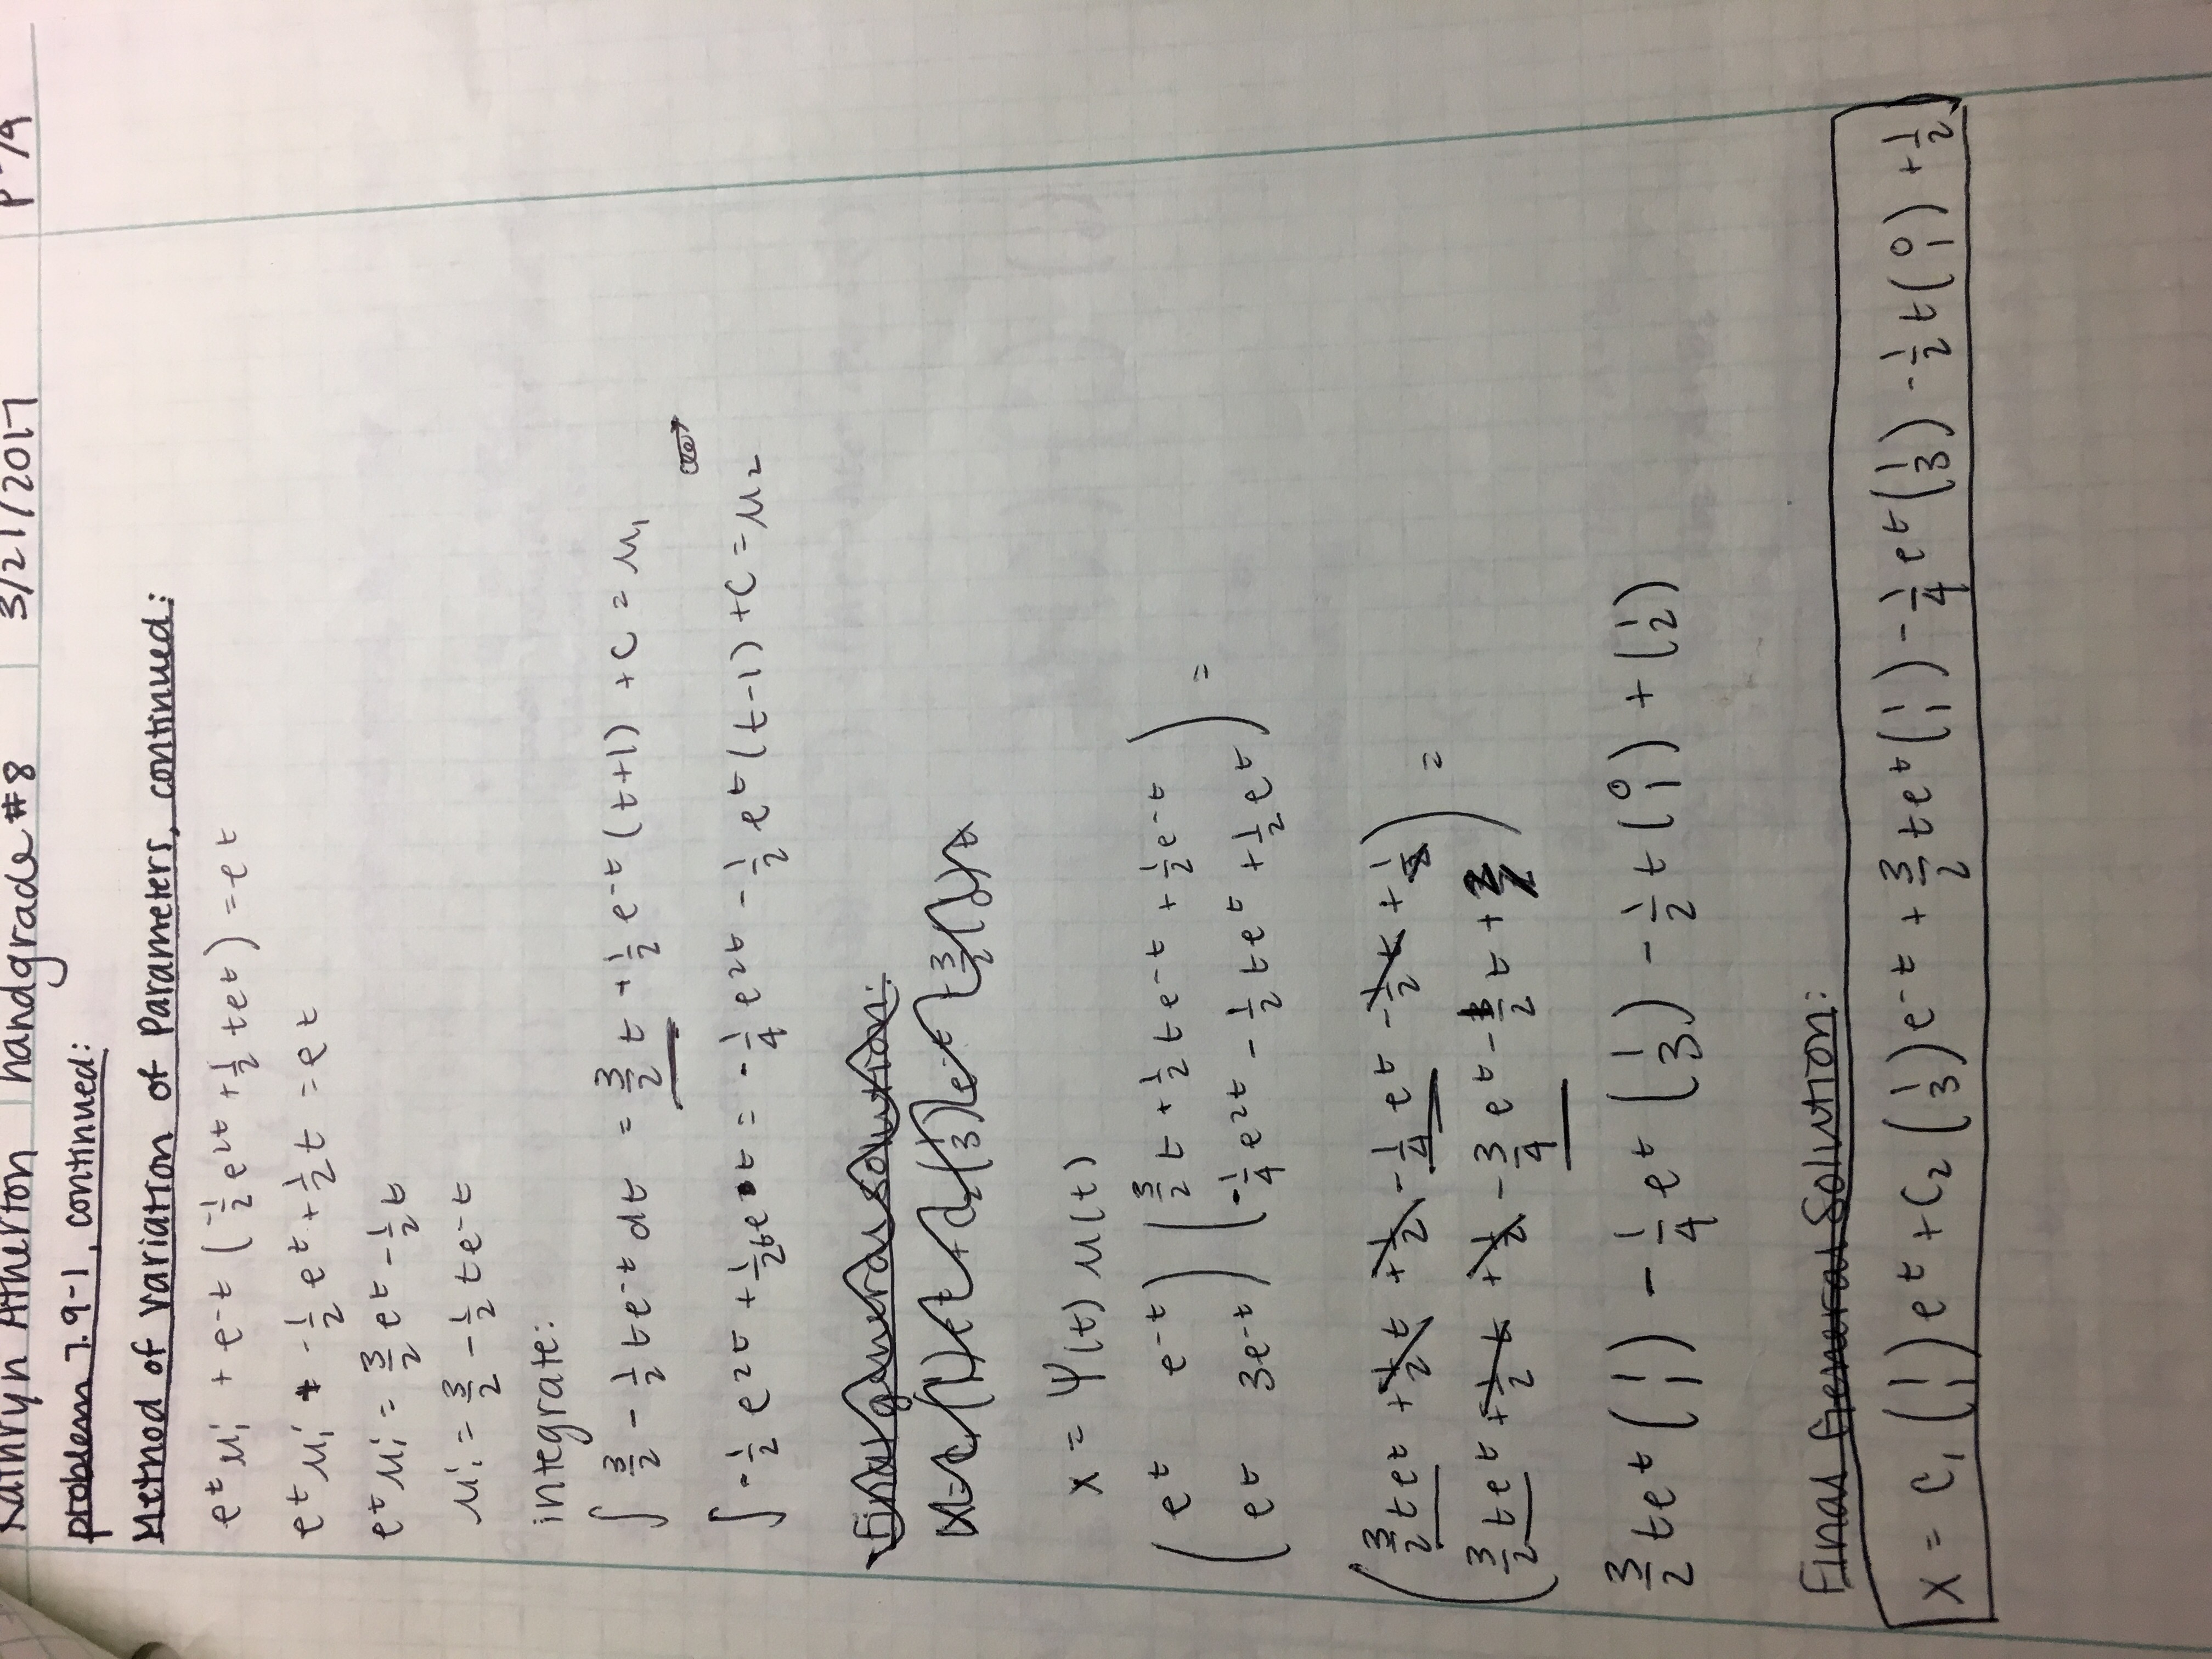 Kathryn Atherton handgrade #8 3/21/2017
problem 7.9-1, continued:
Method of Variation of Parameters, continued:
e^t μ₁' + e^-t (-1/2 e^2t + 1/2 te^t) = e^t
e^t μ₁' + -1/2 e^t + 1/2 t = e^t
e^t μ₁' = 3/2 e^t - 1/2 t
μ₁' = 3/2 - 1/2 te^-t
integrate:
∫ 3/2 - 1/2 te^-t dt = 3/2 t + 1/2 e^-t (t+1) + C = μ₁
∫ -1/2 e^2t + 1/2 te^t = -1/4 e^2t - 1/2 e^t (t-1) + C = μ₂
Final general solution:
x = c₁ (1 1) e^t + c₂ (1 3) e^-t
x = Ψ(t) μ(t)
( e^t e^-t ) ( 3/2 t + 1/2 te^-t + 1/2 e^-t ) =
( e^t 3e^-t ) ( -1/4 e^2t - 1/2 te^t + 1/2 e^t )
( 3/2 te^t + 1/2 t + 1/2 - 1/4 e^t - 1/2 t + 1/2 ) =
( 3/2 te^t + 1/2 t + 1/2 - 3/4 e^t - 3/2 t + 3/2 )
3/2 te^t (1 1) - 1/4 e^t (1 3) - 1/2 t (0 1) + (1 2)
Final General Solution:
x = c₁ (1 1) e^t + c₂ (1 3) e^-t + 3/2 te^t (1 1) - 1/4 e^t (1 3) - 1/2 t (0 1) + 1/2